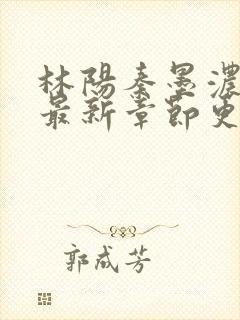 林陽秦墨濃
最新章節更
郭成芳